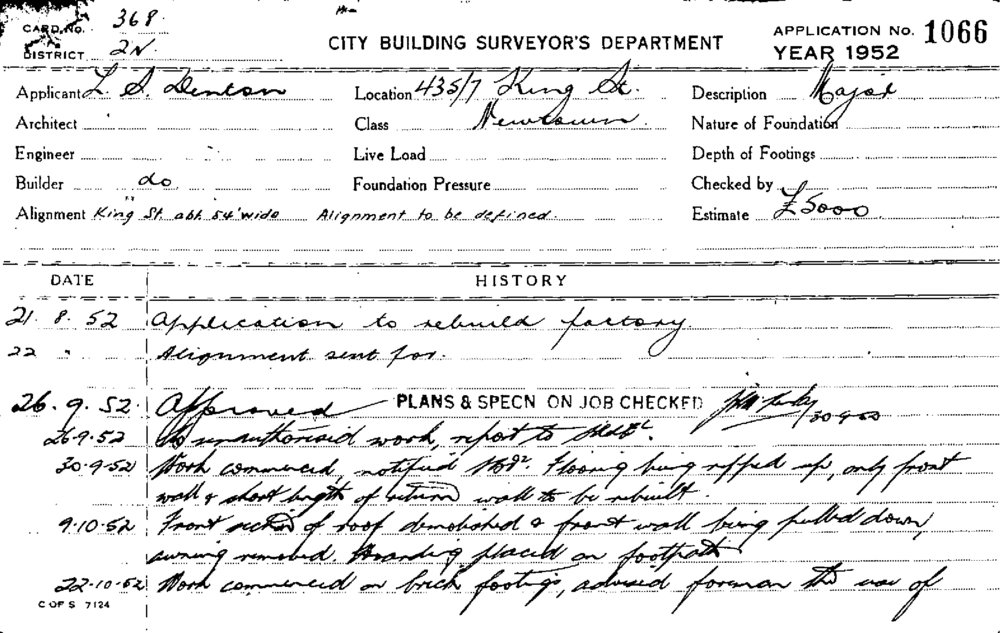 CARD NO. 368
DISTRICT 2N
CITY BUILDING SURVEYOR'S DEPARTMENT
APPLICATION No. 1066
YEAR 1952
Applicant L. S. Denton Location 435/7 King St. Description Major
Architect Class Newtown. Nature of Foundation
Engineer Live Load Depth of Footings
Builder do Foundation Pressure Checked by
Alignment King St. abt. 54' wide Alignment to be defined. Estimate £5000
DATE HISTORY
21. 8. 52 Application to rebuild factory.
22 " Alignment sent for.
26. 9. 52. Approved PLANS & SPECN ON JOB CHECKED 30.9.52
26.9.52 No unauthorised work, report to
30.9.52 Work commenced, notified Flooring being ripped up, only front
wall & short length of return wall to be rebuilt.
9.10.52 Front section of roof demolished & front wall being pulled down,
awning removed. Hoarding placed on footpath
22.10.52 Work commenced on brick footings, advised foreman the use of
C OF S 7124